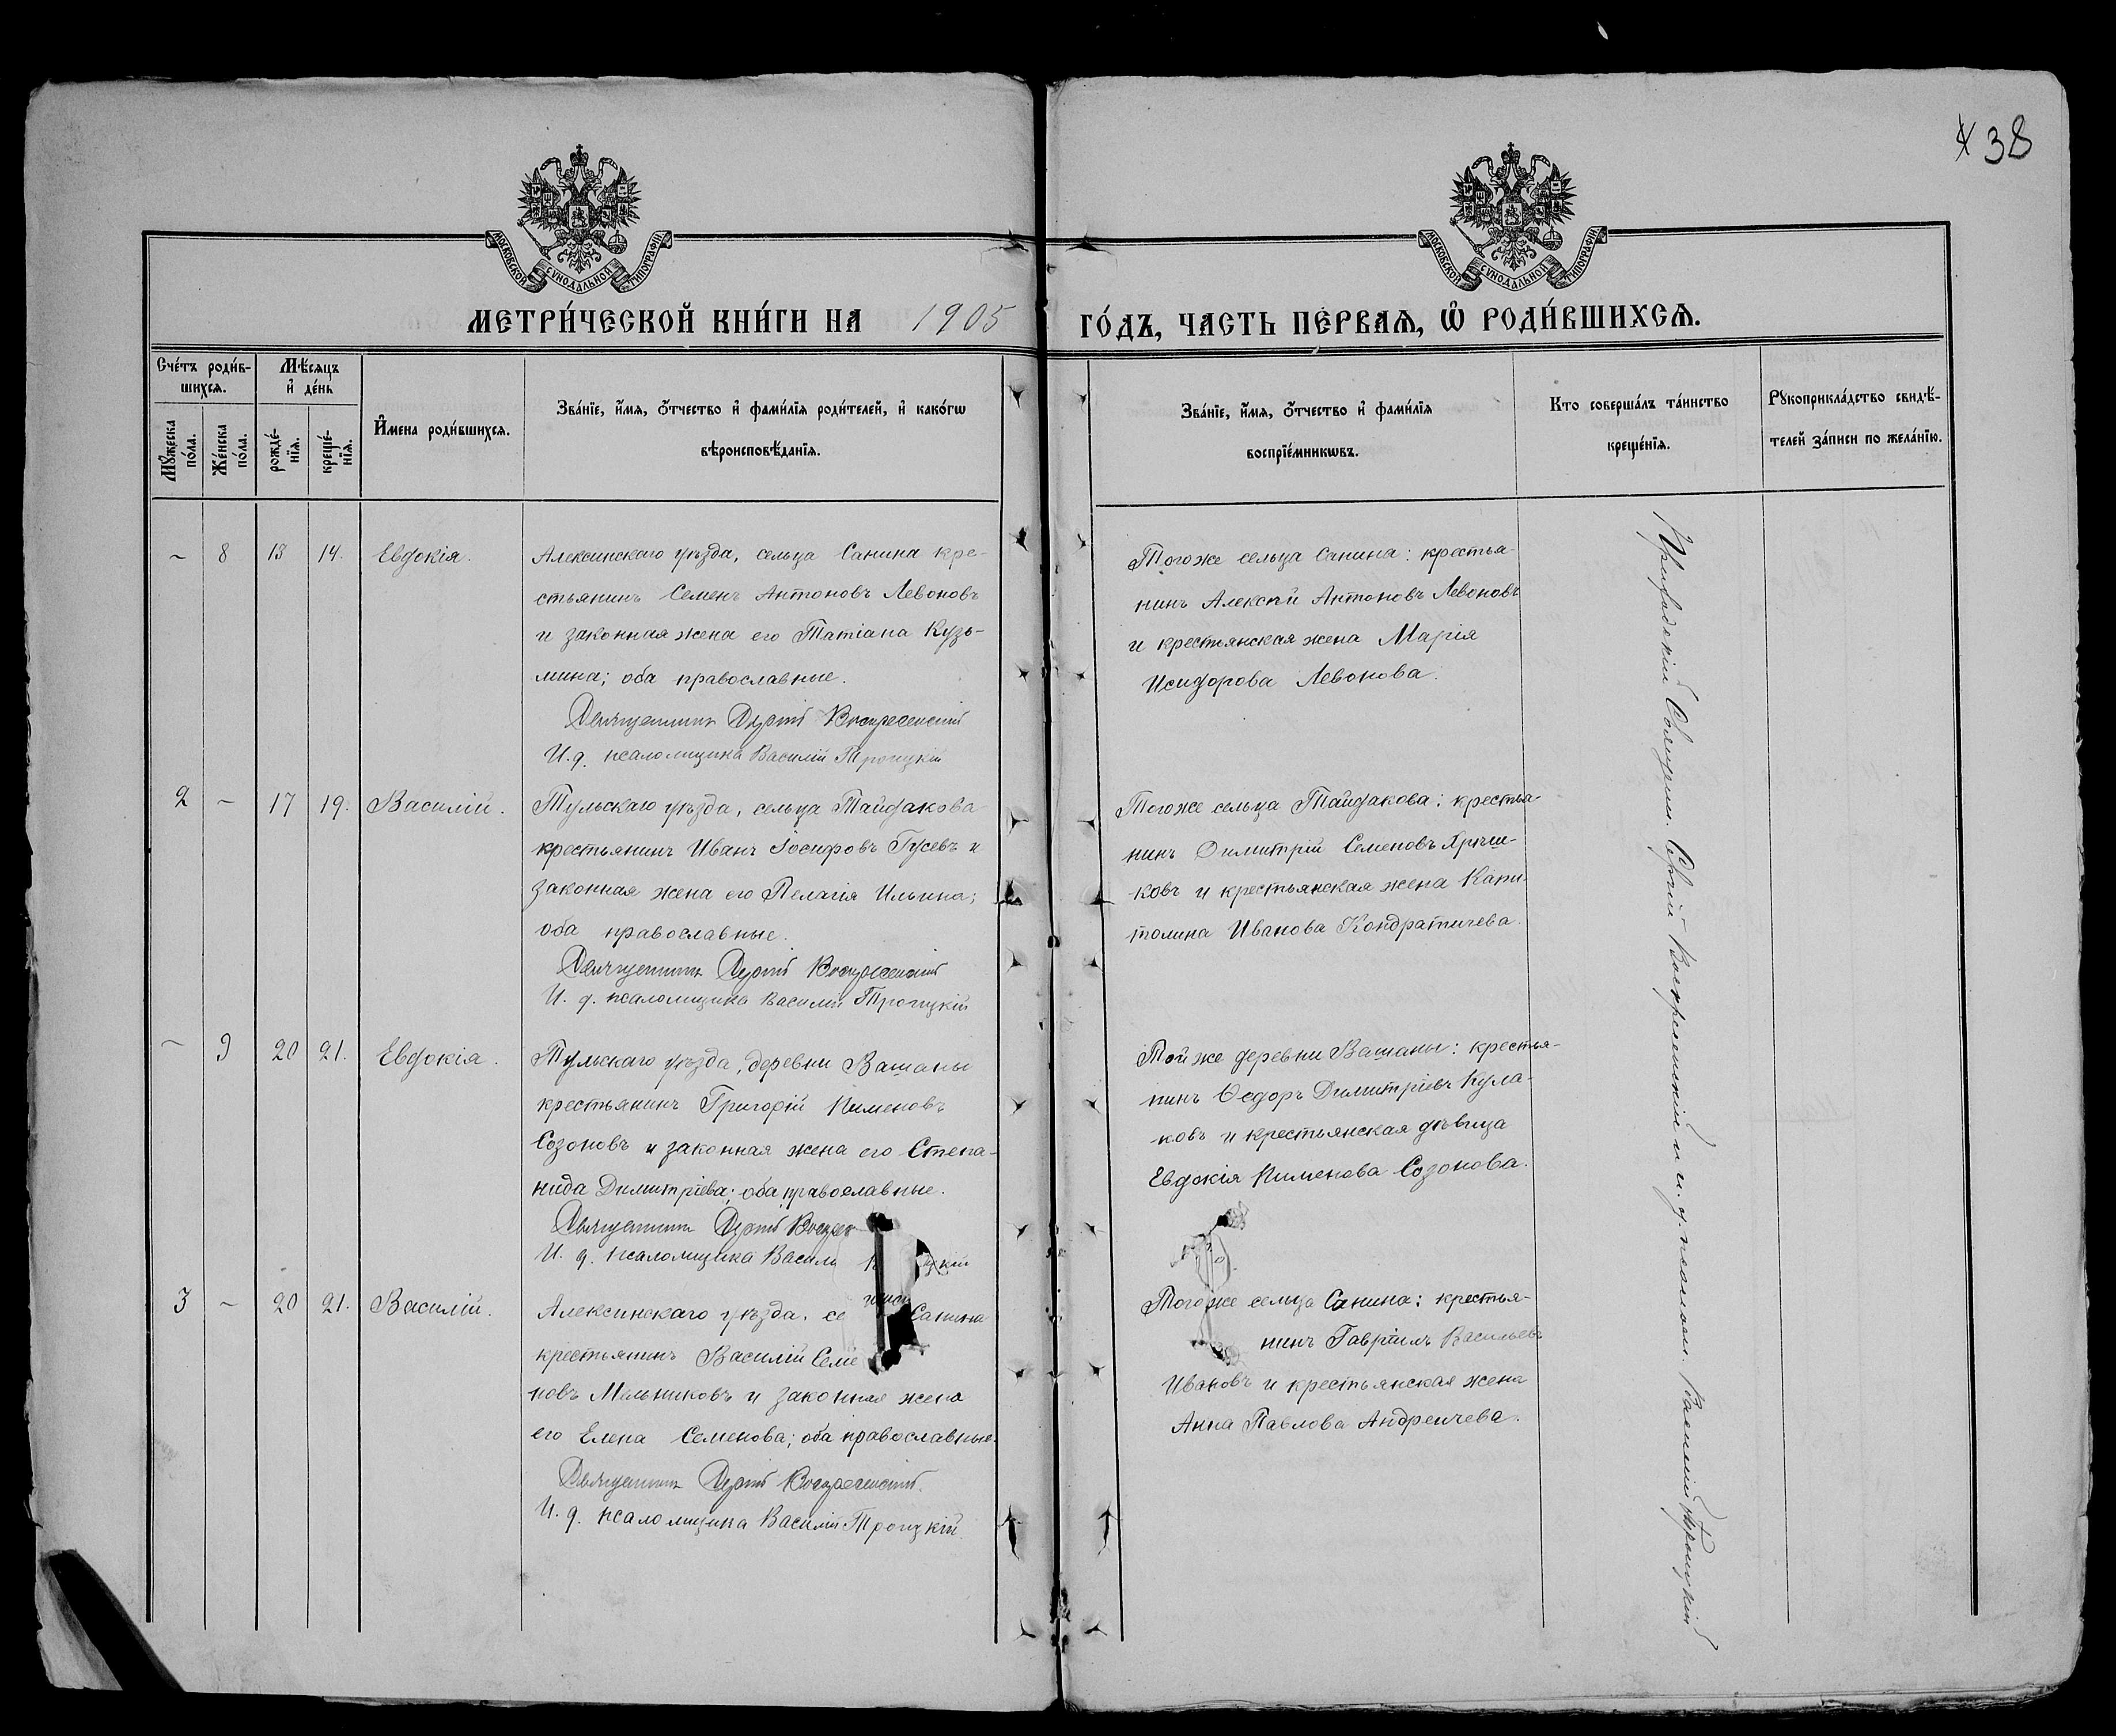 38
МОСКОВСКОЙ СѴНОДАЛЬНОЙ ТИПОГРАФІИ
МОСКОВСКОЙ СѴНОДАЛЬНОЙ ТИПОГРАФІИ
МЕТРИ́ЧЕСКОЙ КНИ́ГИ НА 1905 ГО́ДЪ, ЧАСТЬ ПЕ́РВАѦ, Ѡ҆ РОДИ́ВШИХСѦ.
Сче́тъ роди́в-
шихсѧ.
Мѣ́сѧцъ
и҆ де́нь
Мꙋ́жеска
по́ла.
Же́нска
по́ла.
рожде́-
нїѧ.
креще́-
нїѧ.
И҆мена роди́вшихсѧ.
Зва́нїе, и҆́мѧ, ѻ҆́тчество и҆ фами́лїѧ роди́телей, и҆ како́гѡ
вѣроисповѣ́данїѧ.
Зва́нїе, и҆́мѧ, ѻ҆́тчество и҆ фами́лїѧ
воспрїе́мникѡвъ.
Кто соверша́лъ та́инство
креще́нїѧ.
Рꙋкоприкла́дство свидѣ́-
телей за́писи по жела́нїю.
– 8 13 14. Евдокія.
Алексинскаго уѣзда, сельца Санина кре-
стьянинъ Семенъ Антоновъ Левоновъ
и законная жена его Татіана Кузь-
мина; оба православные.
Священникъ Сергій Воскресенскій
И.д. псаломщика Василій Троицкій
Того же сельца Санина: крестья-
нинъ Алексѣй Антоновъ Левоновъ
и крестьянская жена Марія
Исидорова Левонова.
2 – 17 19. Василій.
Тульскаго уѣзда, сельца Тайдакова
крестьянинъ Иванъ Іосифовъ Гусевъ и
законная жена его Пелагія Ильина;
оба православные.
Священникъ Сергій Воскресенскій
И. д. псаломщика Василій Троицкій
Того же сельца Тайдакова: крестья-
нинъ Димитрій Семеновъ
ковъ и крестьянская жена Капи-
толина Иванова Кондратичева.
– 9 20 21. Евдокія.
Тульскаго уѣзда, деревни Вашаны
крестьянинъ Григорій Пименовъ
Созоновъ и законная жена его Степа-
нида Димитріева; оба православные.
Священникъ Сергій Воскре
И. д. псаломщика Васил цкій
Той же деревни Вашаны: крестья-
нинъ Ѳедоръ Димитріевъ Кула-
ковъ и крестьянская дѣвица
Евдокія Пименова Созонова.
3 – 20 21. Василій.
Алексинскаго уѣзда, се Санина
крестьянинъ Василій Семе
новъ Мельниковъ и законная жена
его Елена Семенова; оба православные.
Священникъ Сергій Воскресенскій.
И. д. псаломщика Василій Троицкій.
Того же сельца Санина: крестья-
нинъ Гавріилъ Васильевъ
Ивановъ и крестьянская жена
Анна Павлова Андреичева.
Приходскій Священ. Сергій Воскресенскій и и. д. псаломщ. Василій Троицкій